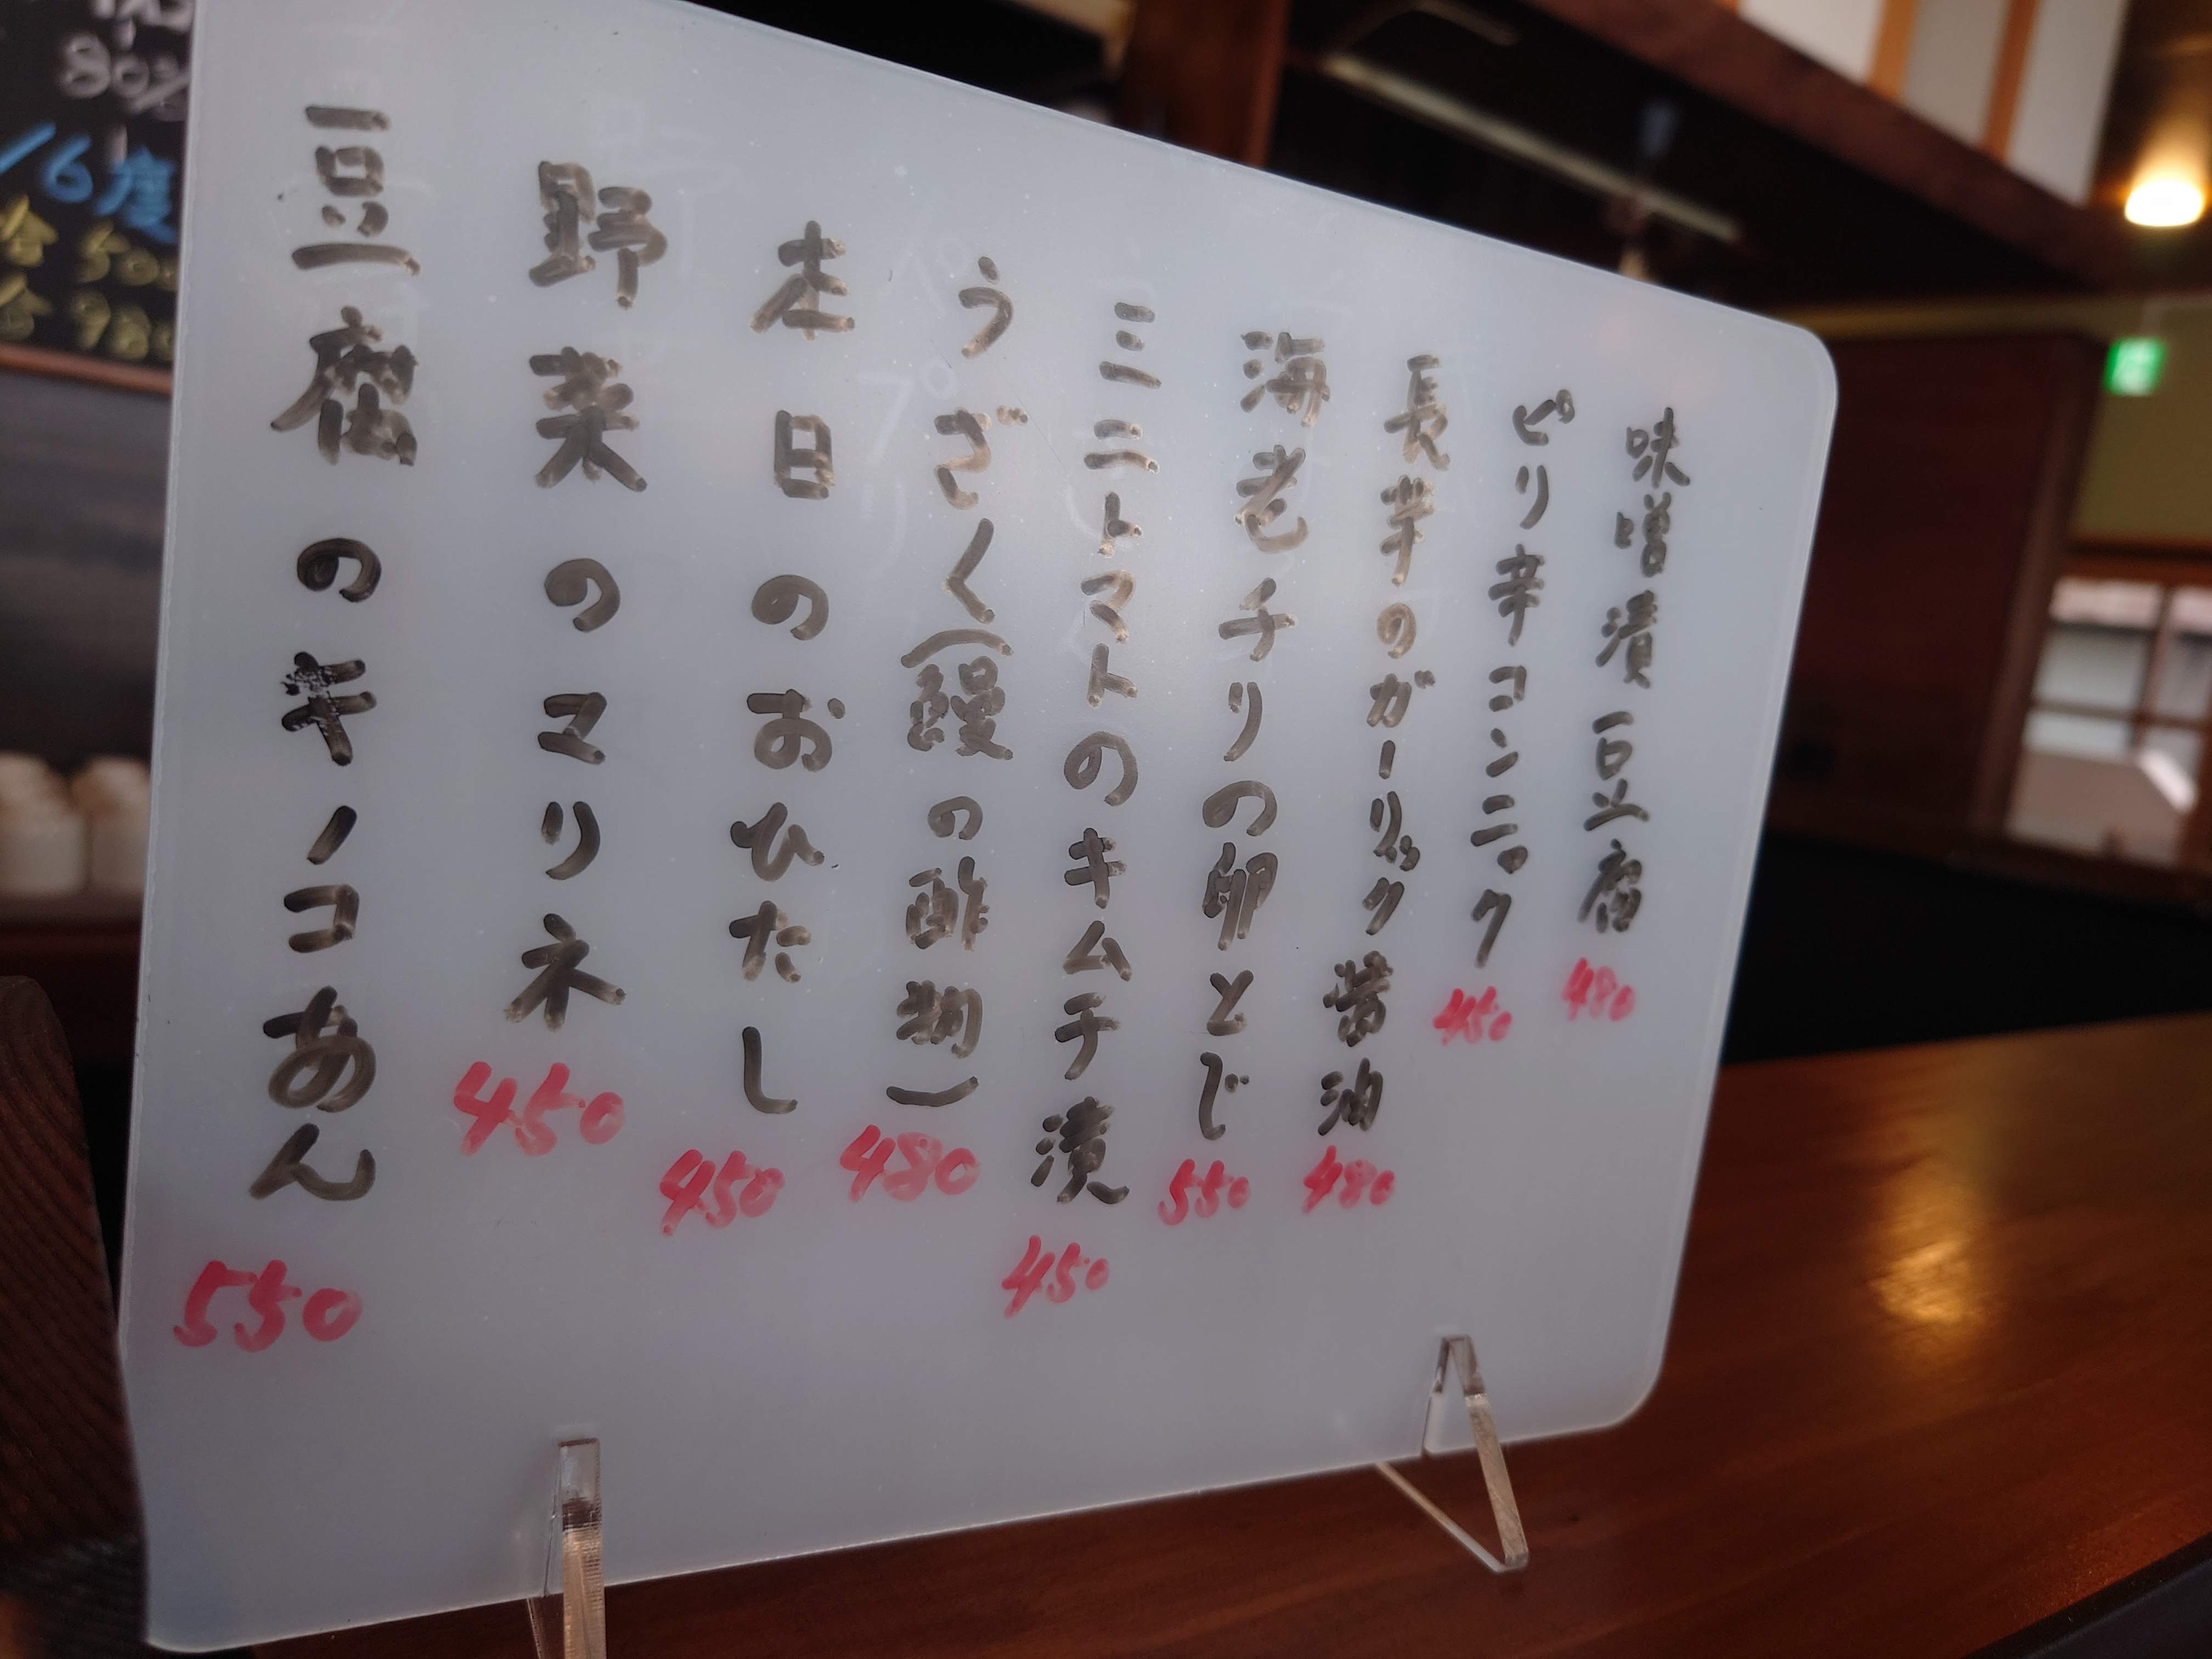 味噌漬豆腐 480
ピリ辛コンニャク 450
長芋のガーリック醤油 480
海老チリの卵とじ 550
ミニトマトのキムチ漬 450
うざく(鰻の酢物) 480
本日のおひたし 450
野菜のマリネ 450
豆腐のキノコあん 550
80%
16度
合 500
合 980